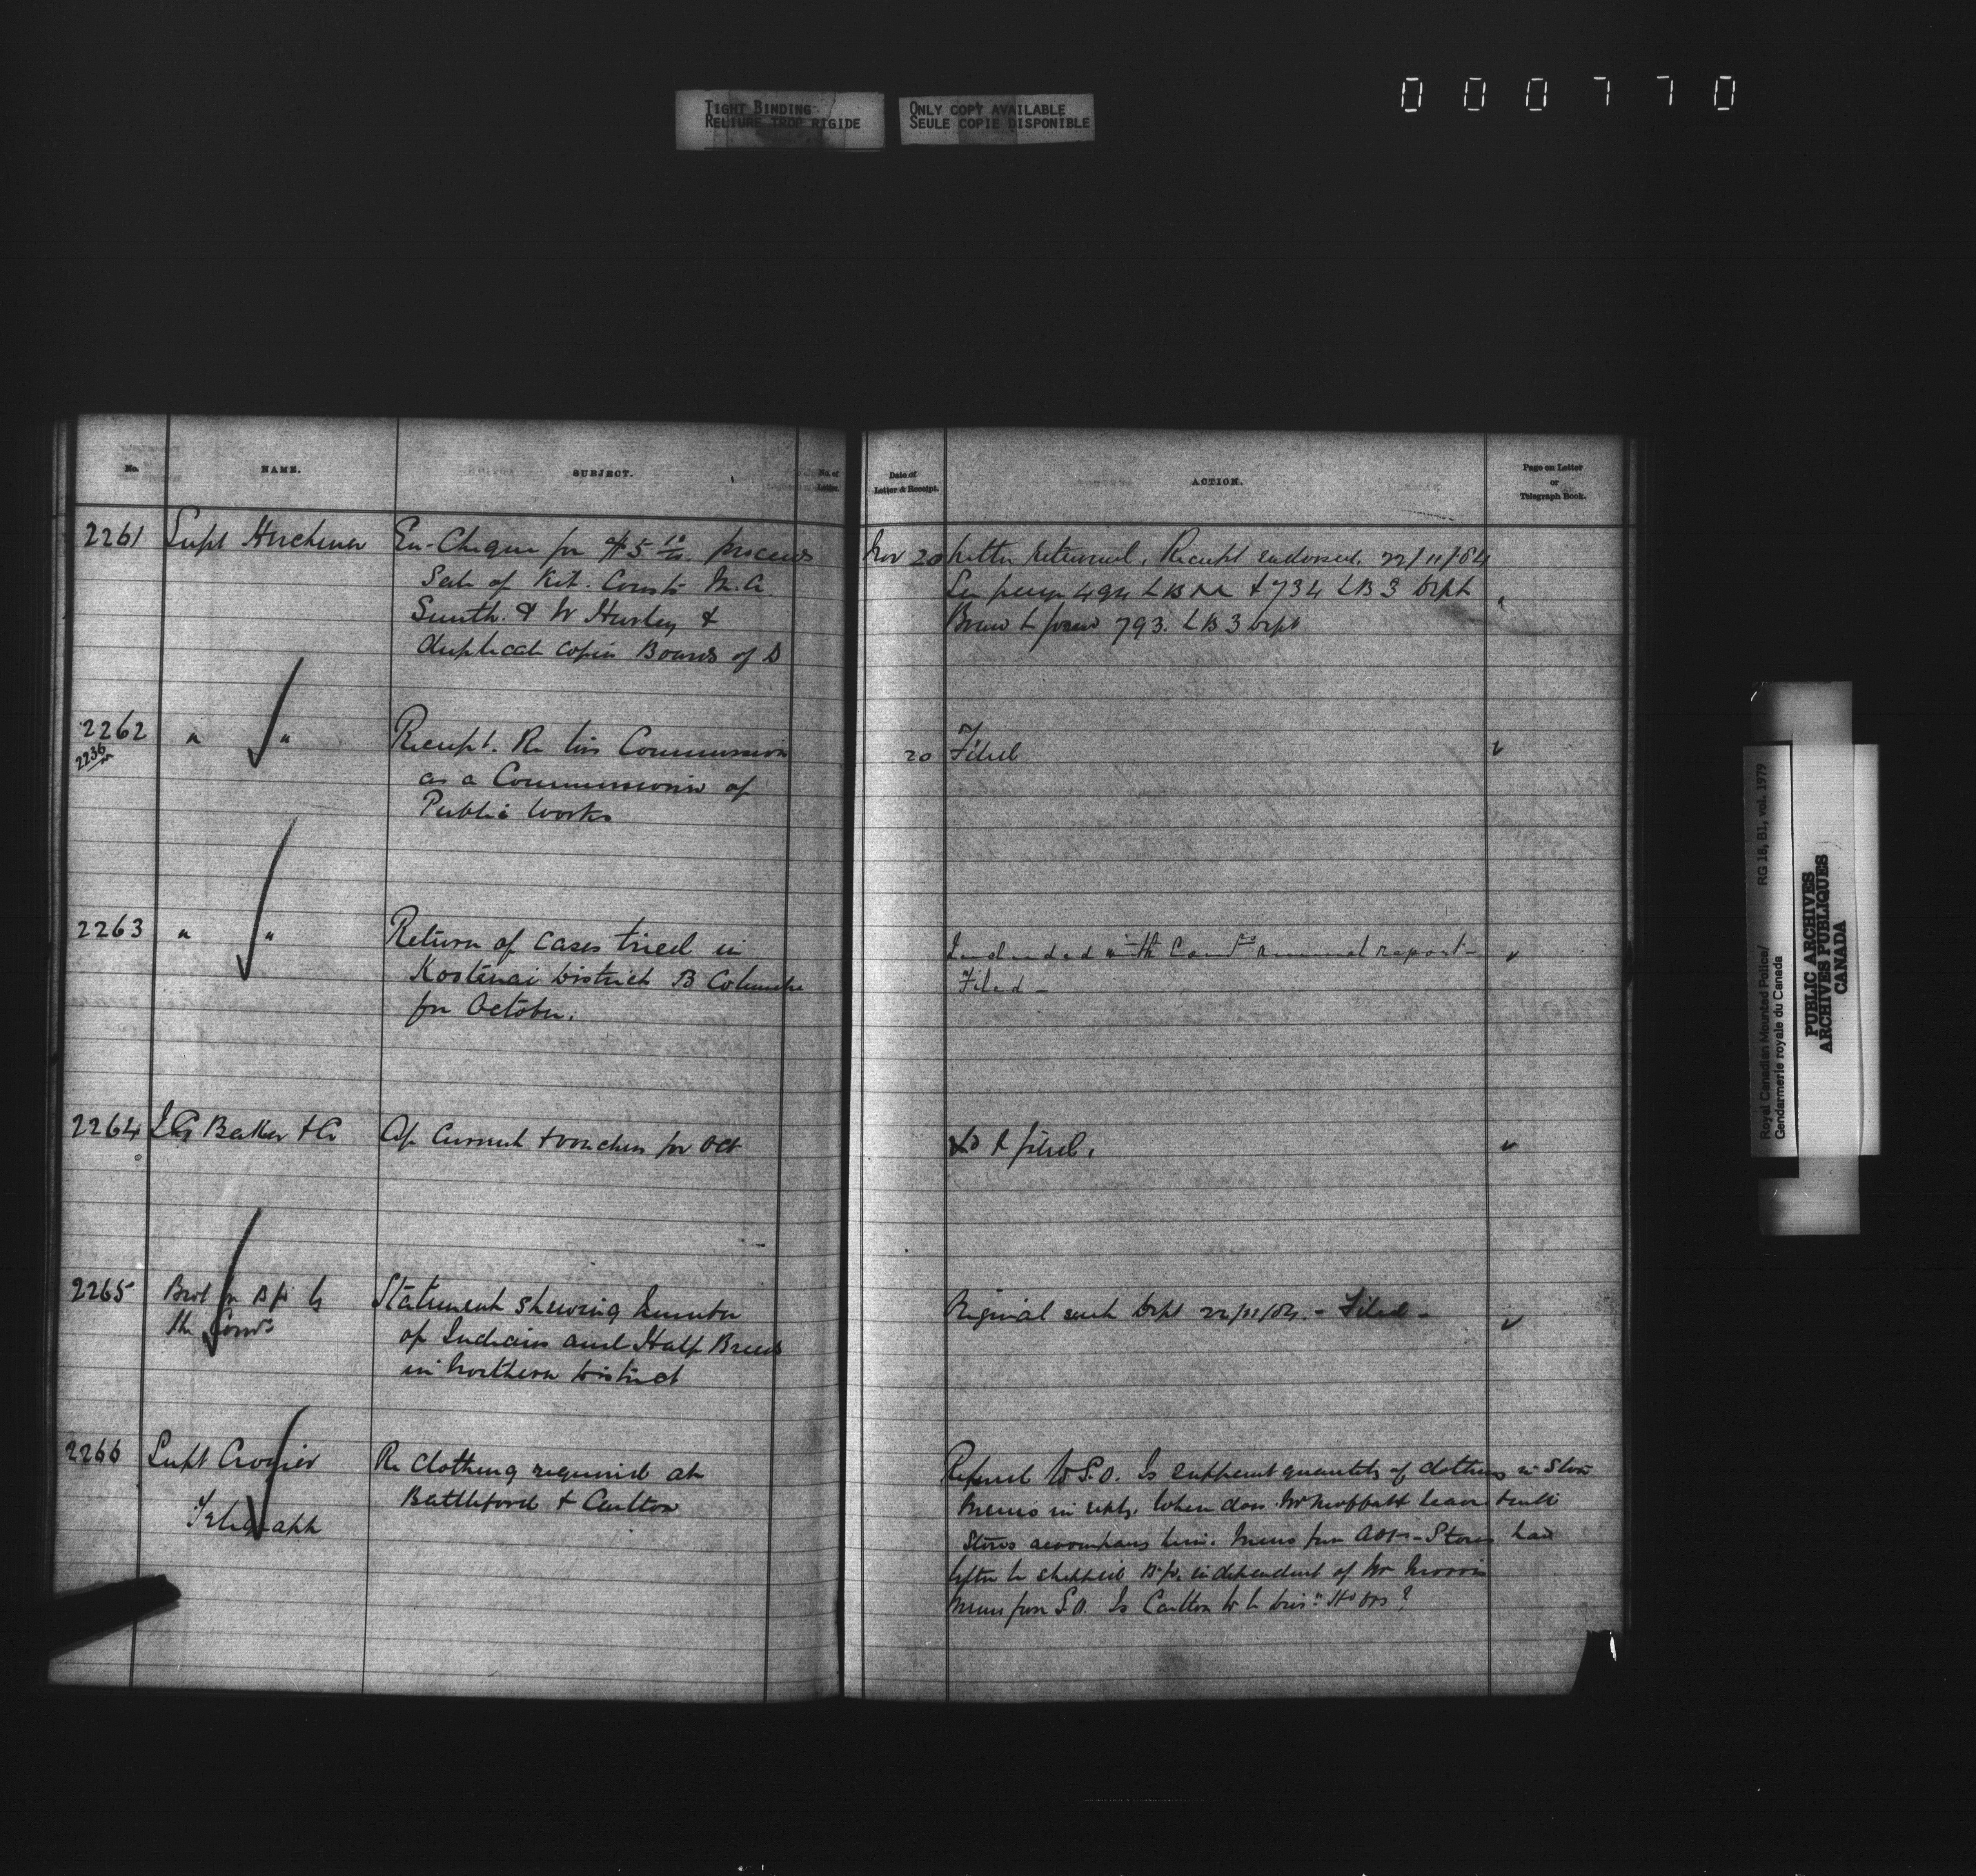 TIGHT BINDING
RELIURE TROP RIGIDE
ONLY COPY AVAILABLE
SEULE COPIE DISPONIBLE
000770
No.
NAME.
SUBJECT.
No. of
Letter.
Date of
Letter & Receipt.
ACTION.
Page on Letter
or
Telegraph Book.
2261 Supt Herchmer En-Cheque for $5 10/100 proceeds
Sale of Kit. Consts M.A.
Smith. & W Hurley &
duplicate copies Boards of
Nov 20 Letter returned. Receipt endorsed. 22/11/84
See page 494 LB & 734 LB 3 Dept
793. LB 3 Dept
2262 " " Receipt. Re his Commission
2236
as a Commissioner of
Public Works
20 Filed
2263 " " Return of cases tried in
Kootenai District B Columbia
for October.
Included with annual report -
Filed -
2264 I G Baker & Co A/c Current & vouchers for Oct
& filed.
2265
the Comr
Statement shewing number
of Indians and Half Breeds
in Northern District
Original sent Dept 22/11/84. - Filed -
2266 Supt Crozier Re clothing required at
Telegraph Battleford & Carlton
Referred to S.O. Is sufficient quantity of clothing in Store
Memo in reply. When does Mr Moffatt leave &
Stores accompany him. Memo from - Stores had
independent of Mr Morris
Memo from S.O. Is Carlton to be
Royal Canadian Mounted Police/
Gendarmerie royale du Canada
RG 18, B1, vol. 1979
PUBLIC ARCHIVES
ARCHIVES PUBLIQUES
CANADA